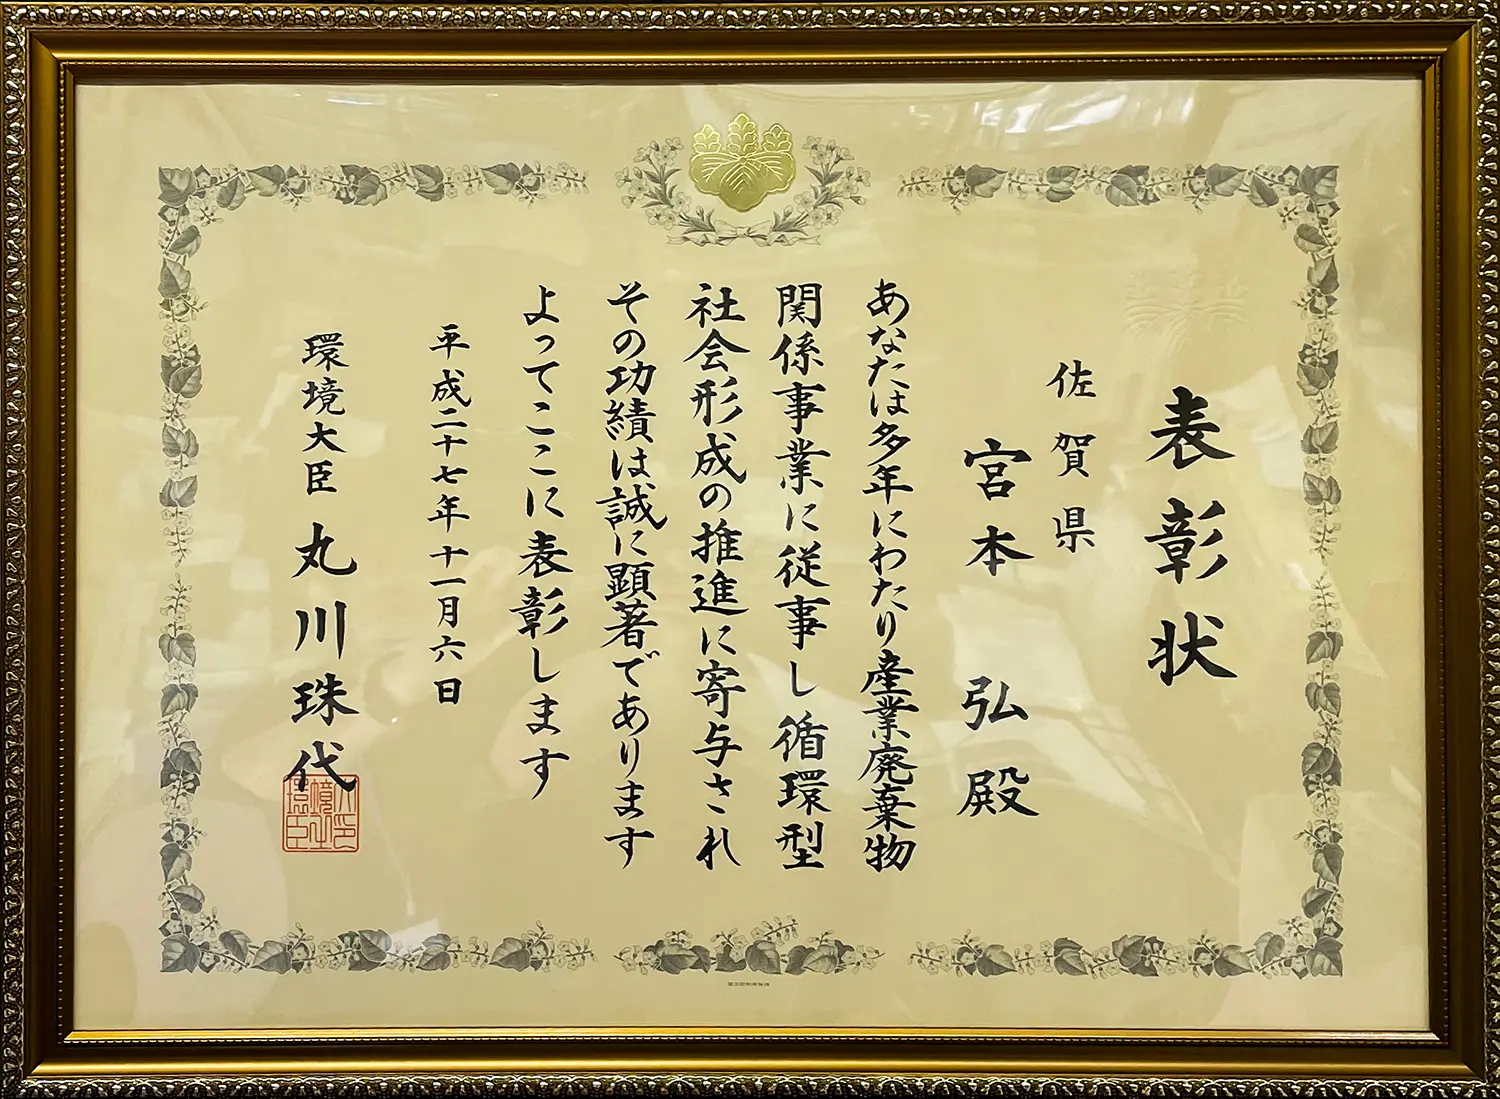 表彰状
佐賀県
宮本 弘 殿
あなたは多年にわたり産業廃棄物
関係事業に従事し循環型
社会形成の推進に寄与され
その功績は誠に顕著であります
よってここに表彰します
平成二十七年十一月六日
環境大臣 丸川珠代